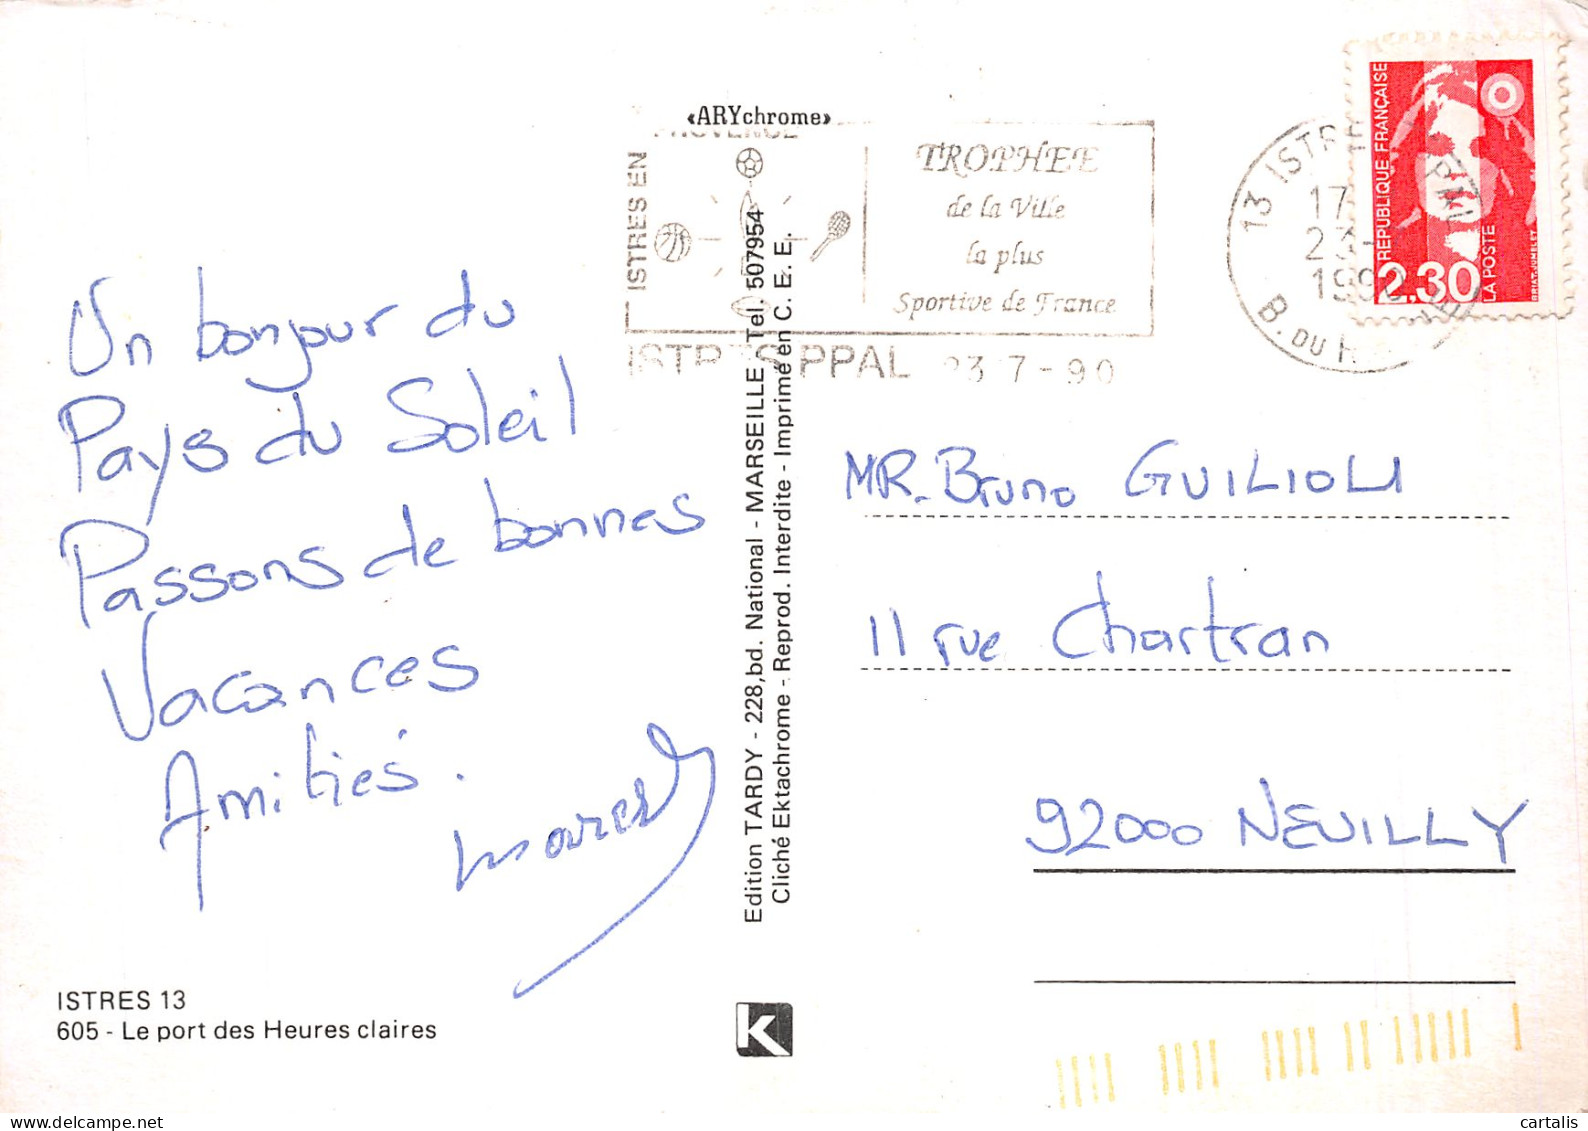 «ARYchrome»
PROVENCE
ISTRES EN
TROPHEE
de la Ville
la plus
Sportive de France
ISTRES PPAL 23 7 - 90
13 ISTRE
17
23
1990
B. DU RH
REPUBLIQUE FRANÇAISE
2,30
LA POSTE
BRIAT-JUMELET
Un bonjour du
Pays du Soleil
Passons de bonnes
Vacances
Amitiés.
Edition TARDY - 228,bd. National - MARSEILLE Tel. 507954
Cliché Ektachrome - Reprod. Interdite - Imprimé en C. E. E.
MR. Bruno GUILIOLI
11 rue Chartran
92000 NEUILLY
ISTRES 13
605 - Le port des Heures claires
K
cartalis